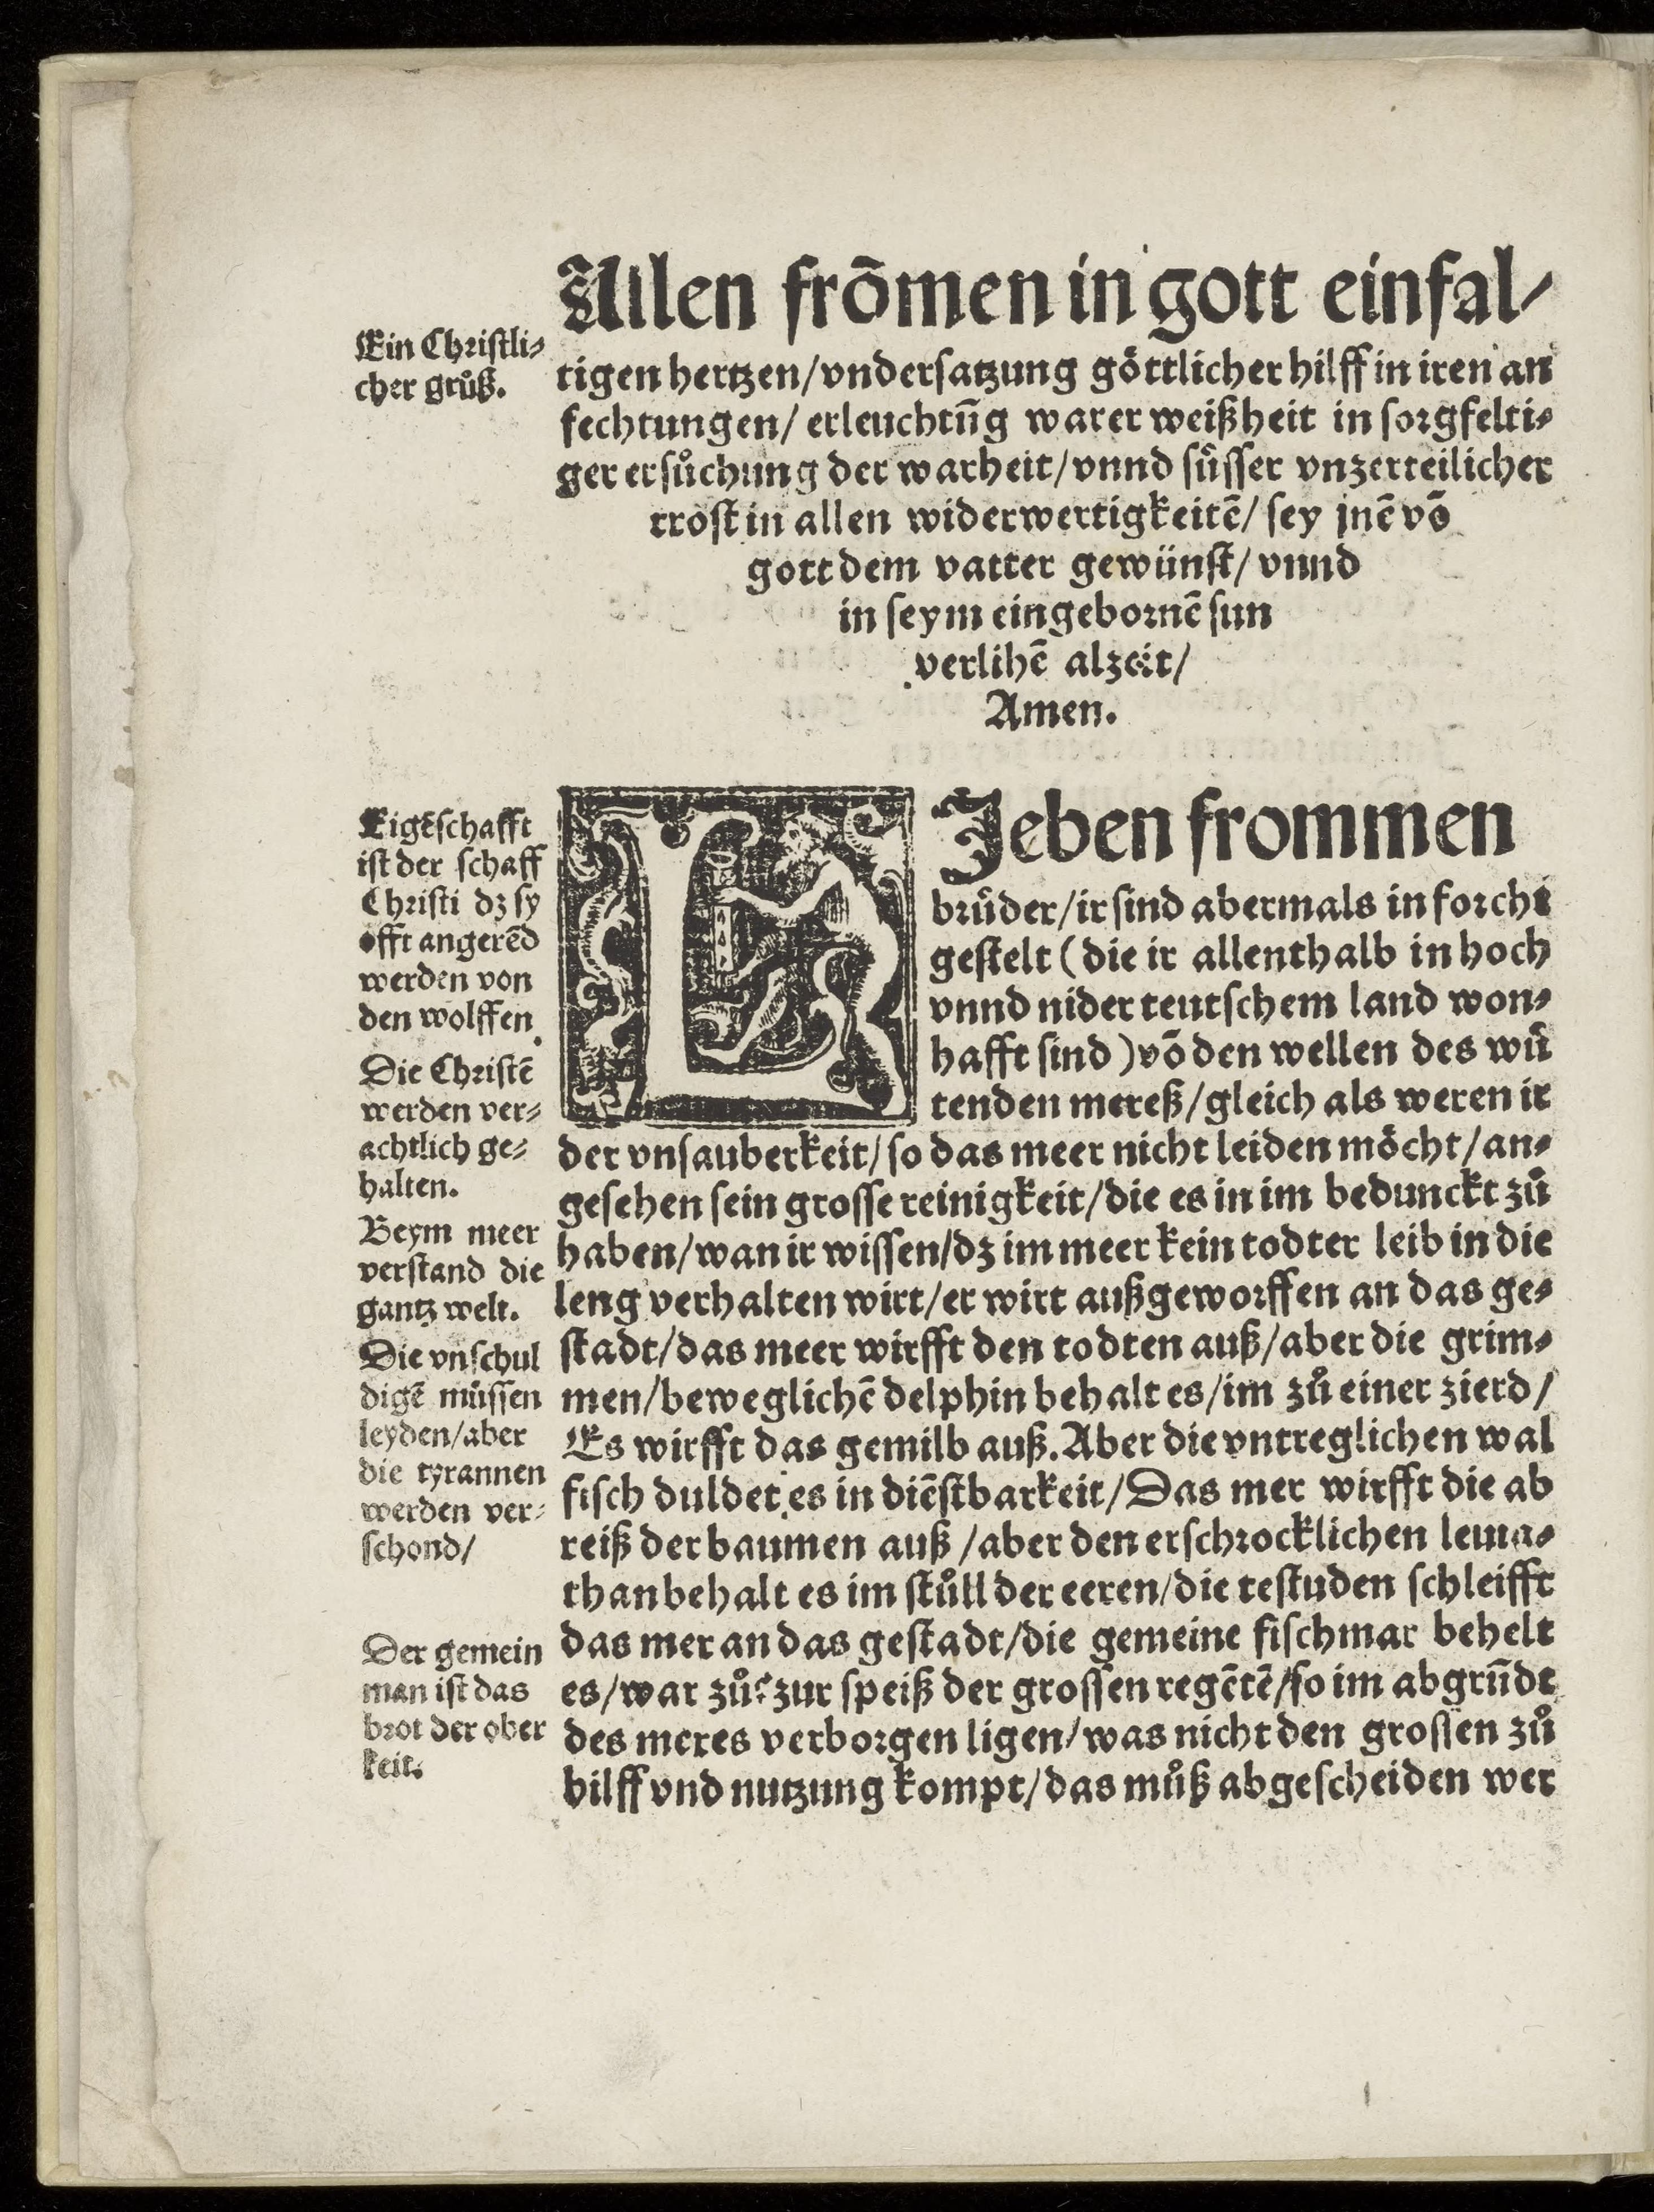 Allen frõmen in gott einfal/
Ein Christli⸗
cher grůß.
tigen hertzen/vndersatzung göttlicher hilff in iren an
fechtungen/ erleuchtũg warer weißheit in sorgfelti⸗
ger ersůchung der warheit/vnnd süsser vnzerteilicher
trost in allen widerwertigkeitẽ/ sey jnẽ võ
gott dem vatter gewünst/ vnnd
in seym eingebornẽ sun
verlihẽ alzeit/
Amen.
LJeben frommen
brüder/ir sind abermals in forcht
gestelt (die ir allenthalb in hoch
vnnd nider teutschem land won⸗
hafft sind) võ den wellen des wü
tenden mereß/gleich als weren ir
der vnsauberkeit/so das meer nicht leiden möcht/an⸗
gesehen sein grosse reinigkeit/die es in im bedunckt zů
haben/wan ir wissen/dz im meer kein todter leib in die
leng verhalten wirt/er wirt außgeworffen an das ge⸗
stadt/das meer wirfft den todten auß/aber die grim⸗
men/beweglichẽ delphin behalt es/im zů einer zierd/
Es wirfft das gemilb auß. Aber die vntreglichen wal
fisch duldet es in diẽstbarkeit/Das mer wirfft die ab
reiß der baumen auß /aber den erschrocklichen leuia⸗
than behalt es im stůll der eeren/die testuden schleifft
das mer an das gestadt/die gemeine fischmar behelt
es/war zů? zur speiß der grossen regẽtẽ/so im abgrũdt
des meres verborgen ligen/was nicht den grossen zů
hilff vnd nutzung kompt/das můß abgescheiden wer
Eigẽschafft
ist der schaff
Christi dz sy
offt angerẽd
werden von
den wolffen
Die Christẽ
werden ver⸗
achtlich ge⸗
halten.
Beym meer
verstand die
gantz welt.
Die vnschul
digẽ müssen
leyden/aber
die tyrannen
werden ver⸗
schond/
Der gemein
man ist das
brot der ober
keit.